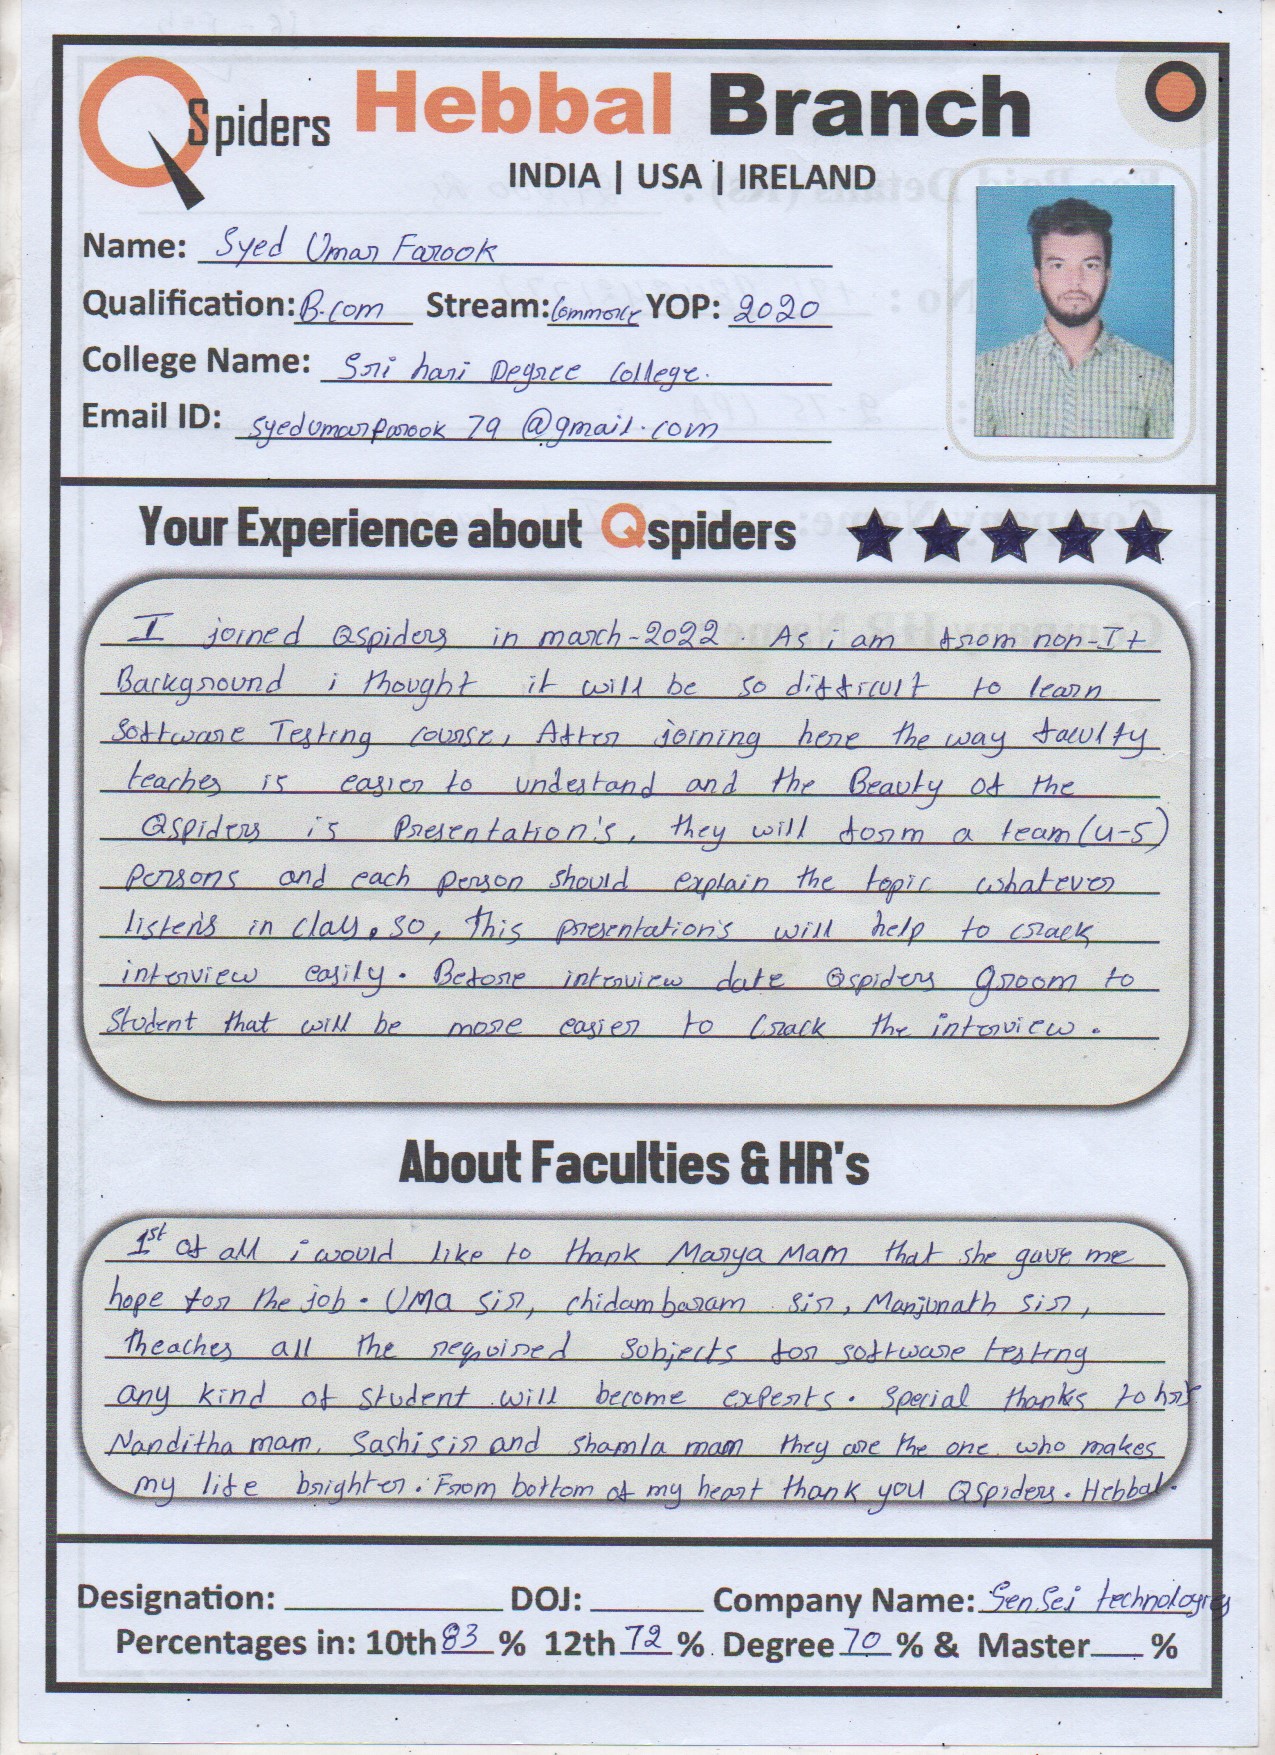 QSpiders Hebbal Branch
INDIA | USA | IRELAND
Name: Syed Umar Farook
Qualification: B.com Stream: Commerce YOP: 2020
College Name: Sri hari Degree College.
Email ID: syedumarfarook 79 @gmail.com
Your Experience about Qspiders
I joined Qspiders in march-2022. As i am from non-It
Background i thought it will be so difficult to learn
Software Testing course, After joining here the way faculty
teaches is easier to undestand and the Beauty of the
Qspiders is Presentation's, they will form a team (4-5)
Persons and each person should explain the topic whatever
listen's in class. so, this presentation's will help to crack
interview easily. Before interview date Qspiders groom to
Student that will be more easier to Crack the interview.
About Faculties & HR's
1st of all i would like to thank Marya Mam that she gave me
hope for the job. UMa sir, chidambaram sir, Manjunath sir,
theaches all the required subjects for software testing
any kind of student will become experts. Special thanks to hr's
Nanditha mam, Sashi sir and Shamla mam they are the one who makes
my life brighter. From bottom of my heart thank you Qspiders. Hebbal.
Designation: DOJ: Company Name: SenSei technologies
Percentages in: 10th 83 % 12th 72 % Degree 70 % & Master %